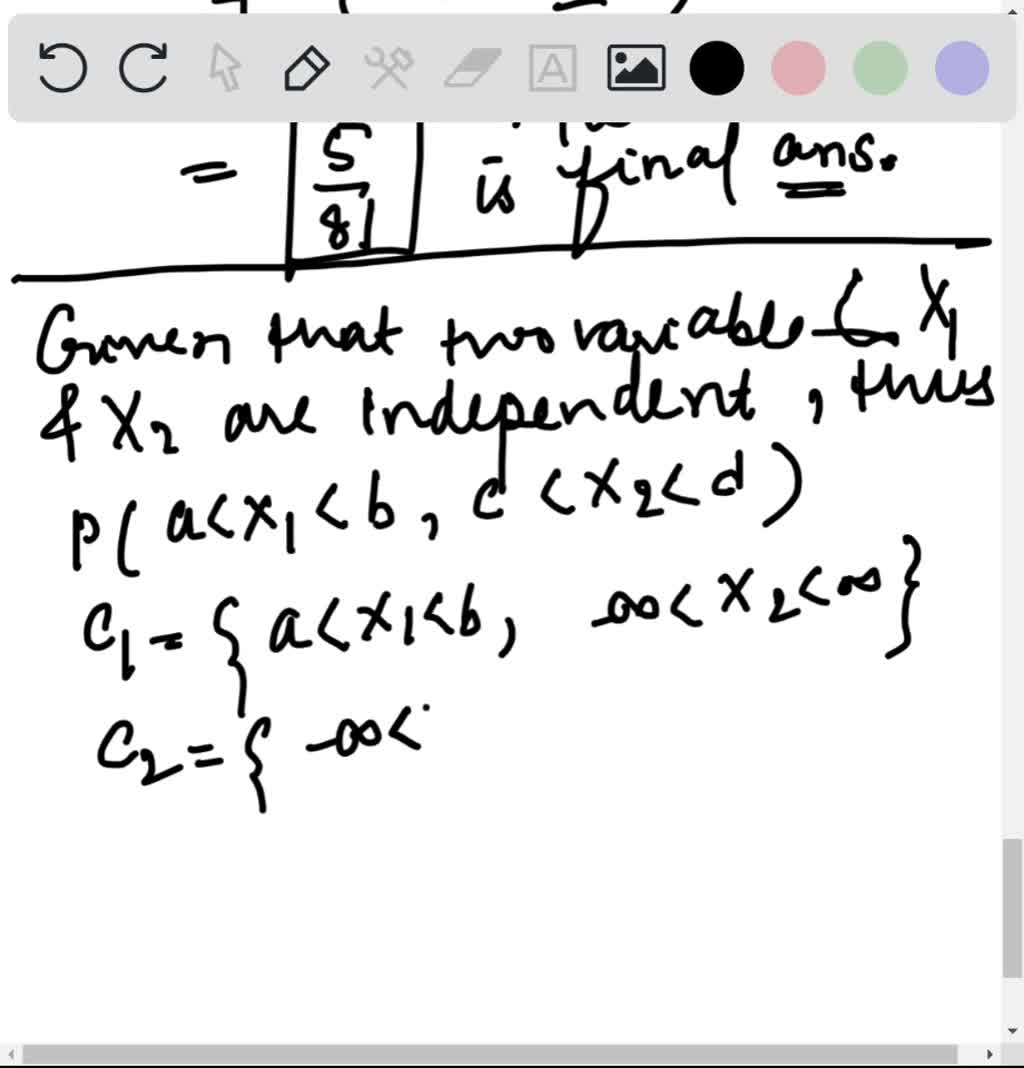 A
= 5/81 is final ans.
Given that two variable X1
& X2 are independent, thus
P( a<x1<b, c<x2<d)
C1 = { a<x1<b, -∞<x2<∞}
C2 = { -∞<